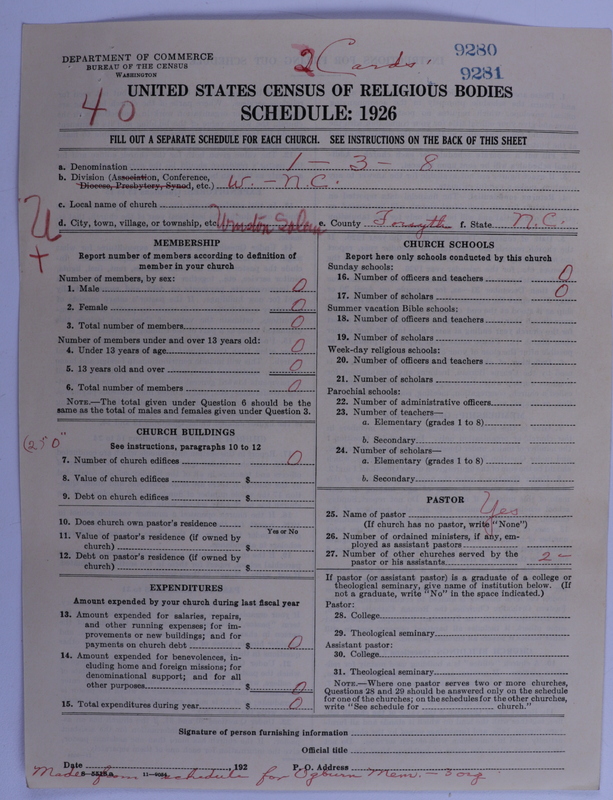 DEPARTMENT OF COMMERCE
BUREAU OF THE CENSUS
WASHINGTON
2 Cards.
9280
9281
40
UNITED STATES CENSUS OF RELIGIOUS BODIES
SCHEDULE: 1926
FILL OUT A SEPARATE SCHEDULE FOR EACH CHURCH. SEE INSTRUCTIONS ON THE BACK OF THIS SHEET
a. Denomination 1 - 3 - 8
b. Division (Association, Conference, Diocese, Presbytery, Synod, etc.) W. - N.C.
c. Local name of church
d. City, town, village, or township, etc. Winston Salem e. County Forsyth f. State N.C.
U
+
MEMBERSHIP
Report number of members according to definition of
member in your church
Number of members, by sex:
1. Male 0
2. Female 0
3. Total number of members 0
Number of members under and over 13 years old:
4. Under 13 years of age 0
5. 13 years old and over 0
6. Total number of members 0
NOTE.—The total given under Question 6 should be the
same as the total of males and females given under Question 3.
CHURCH BUILDINGS
See instructions, paragraphs 10 to 12
7. Number of church edifices 0
8. Value of church edifices $
9. Debt on church edifices $
10. Does church own pastor's residence
Yes or No
11. Value of pastor's residence (if owned by
church) $
12. Debt on pastor's residence (if owned by
church) $
EXPENDITURES
Amount expended by your church during last fiscal year
13. Amount expended for salaries, repairs,
and other running expenses; for im-
provements or new buildings; and for
payments on church debt $ 0
14. Amount expended for benevolences, in-
cluding home and foreign missions; for
denominational support; and for all
other purposes $ 0
15. Total expenditures during year $ 0
CHURCH SCHOOLS
Report here only schools conducted by this church
Sunday schools:
16. Number of officers and teachers 0
17. Number of scholars 0
Summer vacation Bible schools:
18. Number of officers and teachers
19. Number of scholars
Week-day religious schools:
20. Number of officers and teachers
21. Number of scholars
Parochial schools:
22. Number of administrative officers
23. Number of teachers—
a. Elementary (grades 1 to 8)
b. Secondary
24. Number of scholars—
a. Elementary (grades 1 to 8)
b. Secondary
PASTOR
25. Name of pastor Yes
(If church has no pastor, write "None")
26. Number of ordained ministers, if any, em-
ployed as assistant pastors
27. Number of other churches served by the
pastor or his assistants 2 -
If pastor (or assistant pastor) is a graduate of a college or
theological seminary, give name of institution below. (If
not a graduate, write "No" in the space indicated.)
Pastor:
28. College
29. Theological seminary
Assistant pastor:
30. College
31. Theological seminary
NOTE.—Where one pastor serves two or more churches,
Questions 28 and 29 should be answered only on the schedule
for one of the churches; on the schedules for the other churches,
write "See schedule for church."
Signature of person furnishing information
Official title
Date , 192 P. O. Address
11-9084
Made from schedule for Ogburn Mem. - 3 org